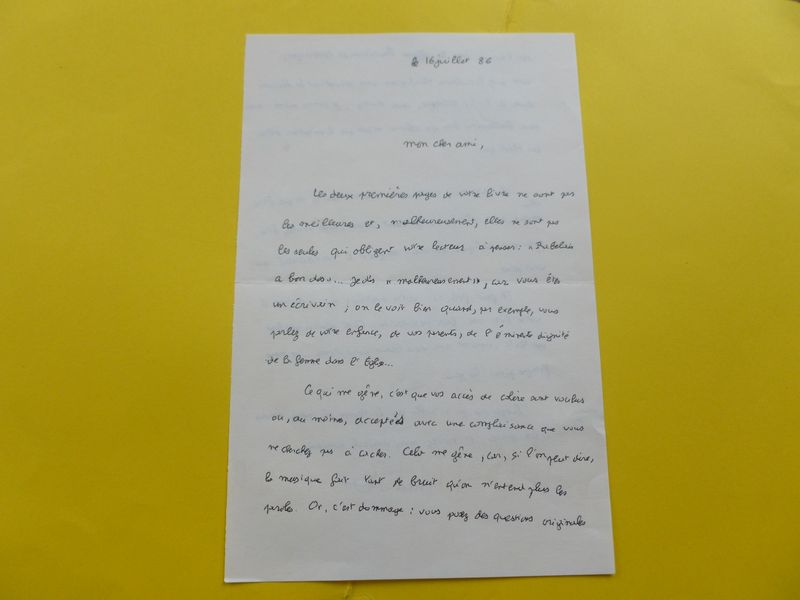 le 16 juillet 86
mon cher ami,
Les deux premières pages de votre livre ne sont pas
les meilleures et, malheureusement, elles ne sont pas
les seules qui obligent votre lecteur à penser : « Rabelais
a bon dos »... Je dis « malheureusement », car vous êtes
un écrivain ; on le voit bien quand, par exemple, vous
parlez de votre enfance, de vos parents, de l'éminente dignité
de la femme dans l'Église...
Ce qui me gêne, c'est que vos accès de colère sont voulus
ou, au moins, acceptés avec une complaisance que vous
ne cherchez pas à cacher. Cela me gêne, car, si l'on peut dire,
la musique fait tant de bruit qu'on n'entend plus les
paroles. Or, c'est dommage : vous posez des questions originales